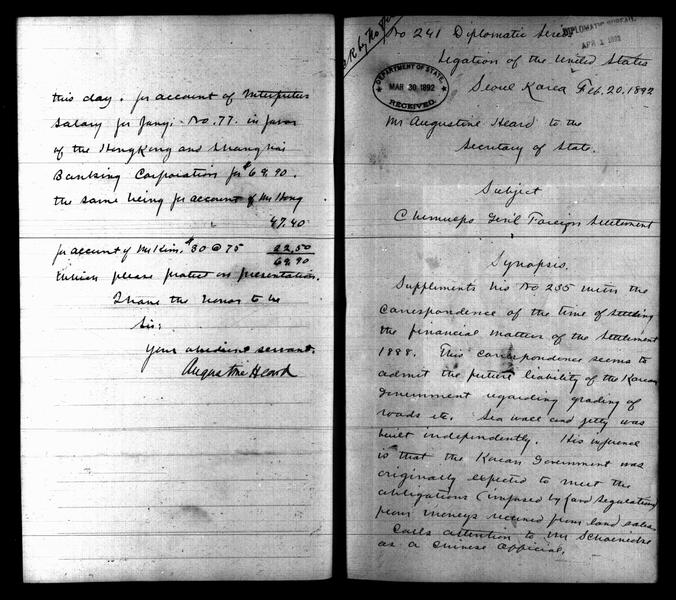 this day. for account of Interpreters
Salary for Jany. No. 77. in favor
of the HongKong and Shanghai
Banking Corporation for $69.90.
the same being for account of Mr Hong
47.40
for account of Mr Kim. $30 @ 75 22.50
69.90
which please protect on presentation.
I have the honor to be
Sir:
Your obedient servant.
Augustine Heard
No 241 Diplomatic Series
DIPLOMATIC BUREAU.
APR 1 1892
Legation of the United States
DEPARTMENT OF STATE.
MAR 30 1892
RECEIVED.
Seoul Korea Feb. 20. 1892
Mr Augustine Heard to the
Secretary of State.
Subject
Chemulpo Genl Foreign Settlement
Synopsis.
Supplements his No 235 with the
correspondence of the time of settling
the financial matters of the Settlement
1888. This correspondence seems to
admit the future liability of the Korean
Government regarding grading of
roads etc. Sea wall and jetty was
built independently. His inference
is that the Korean Government was
originally expected to meet the
obligations (imposed by land regulations)
from moneys received from land sales.
Calls attention to Mr Schoenicke
as a Chinese official.